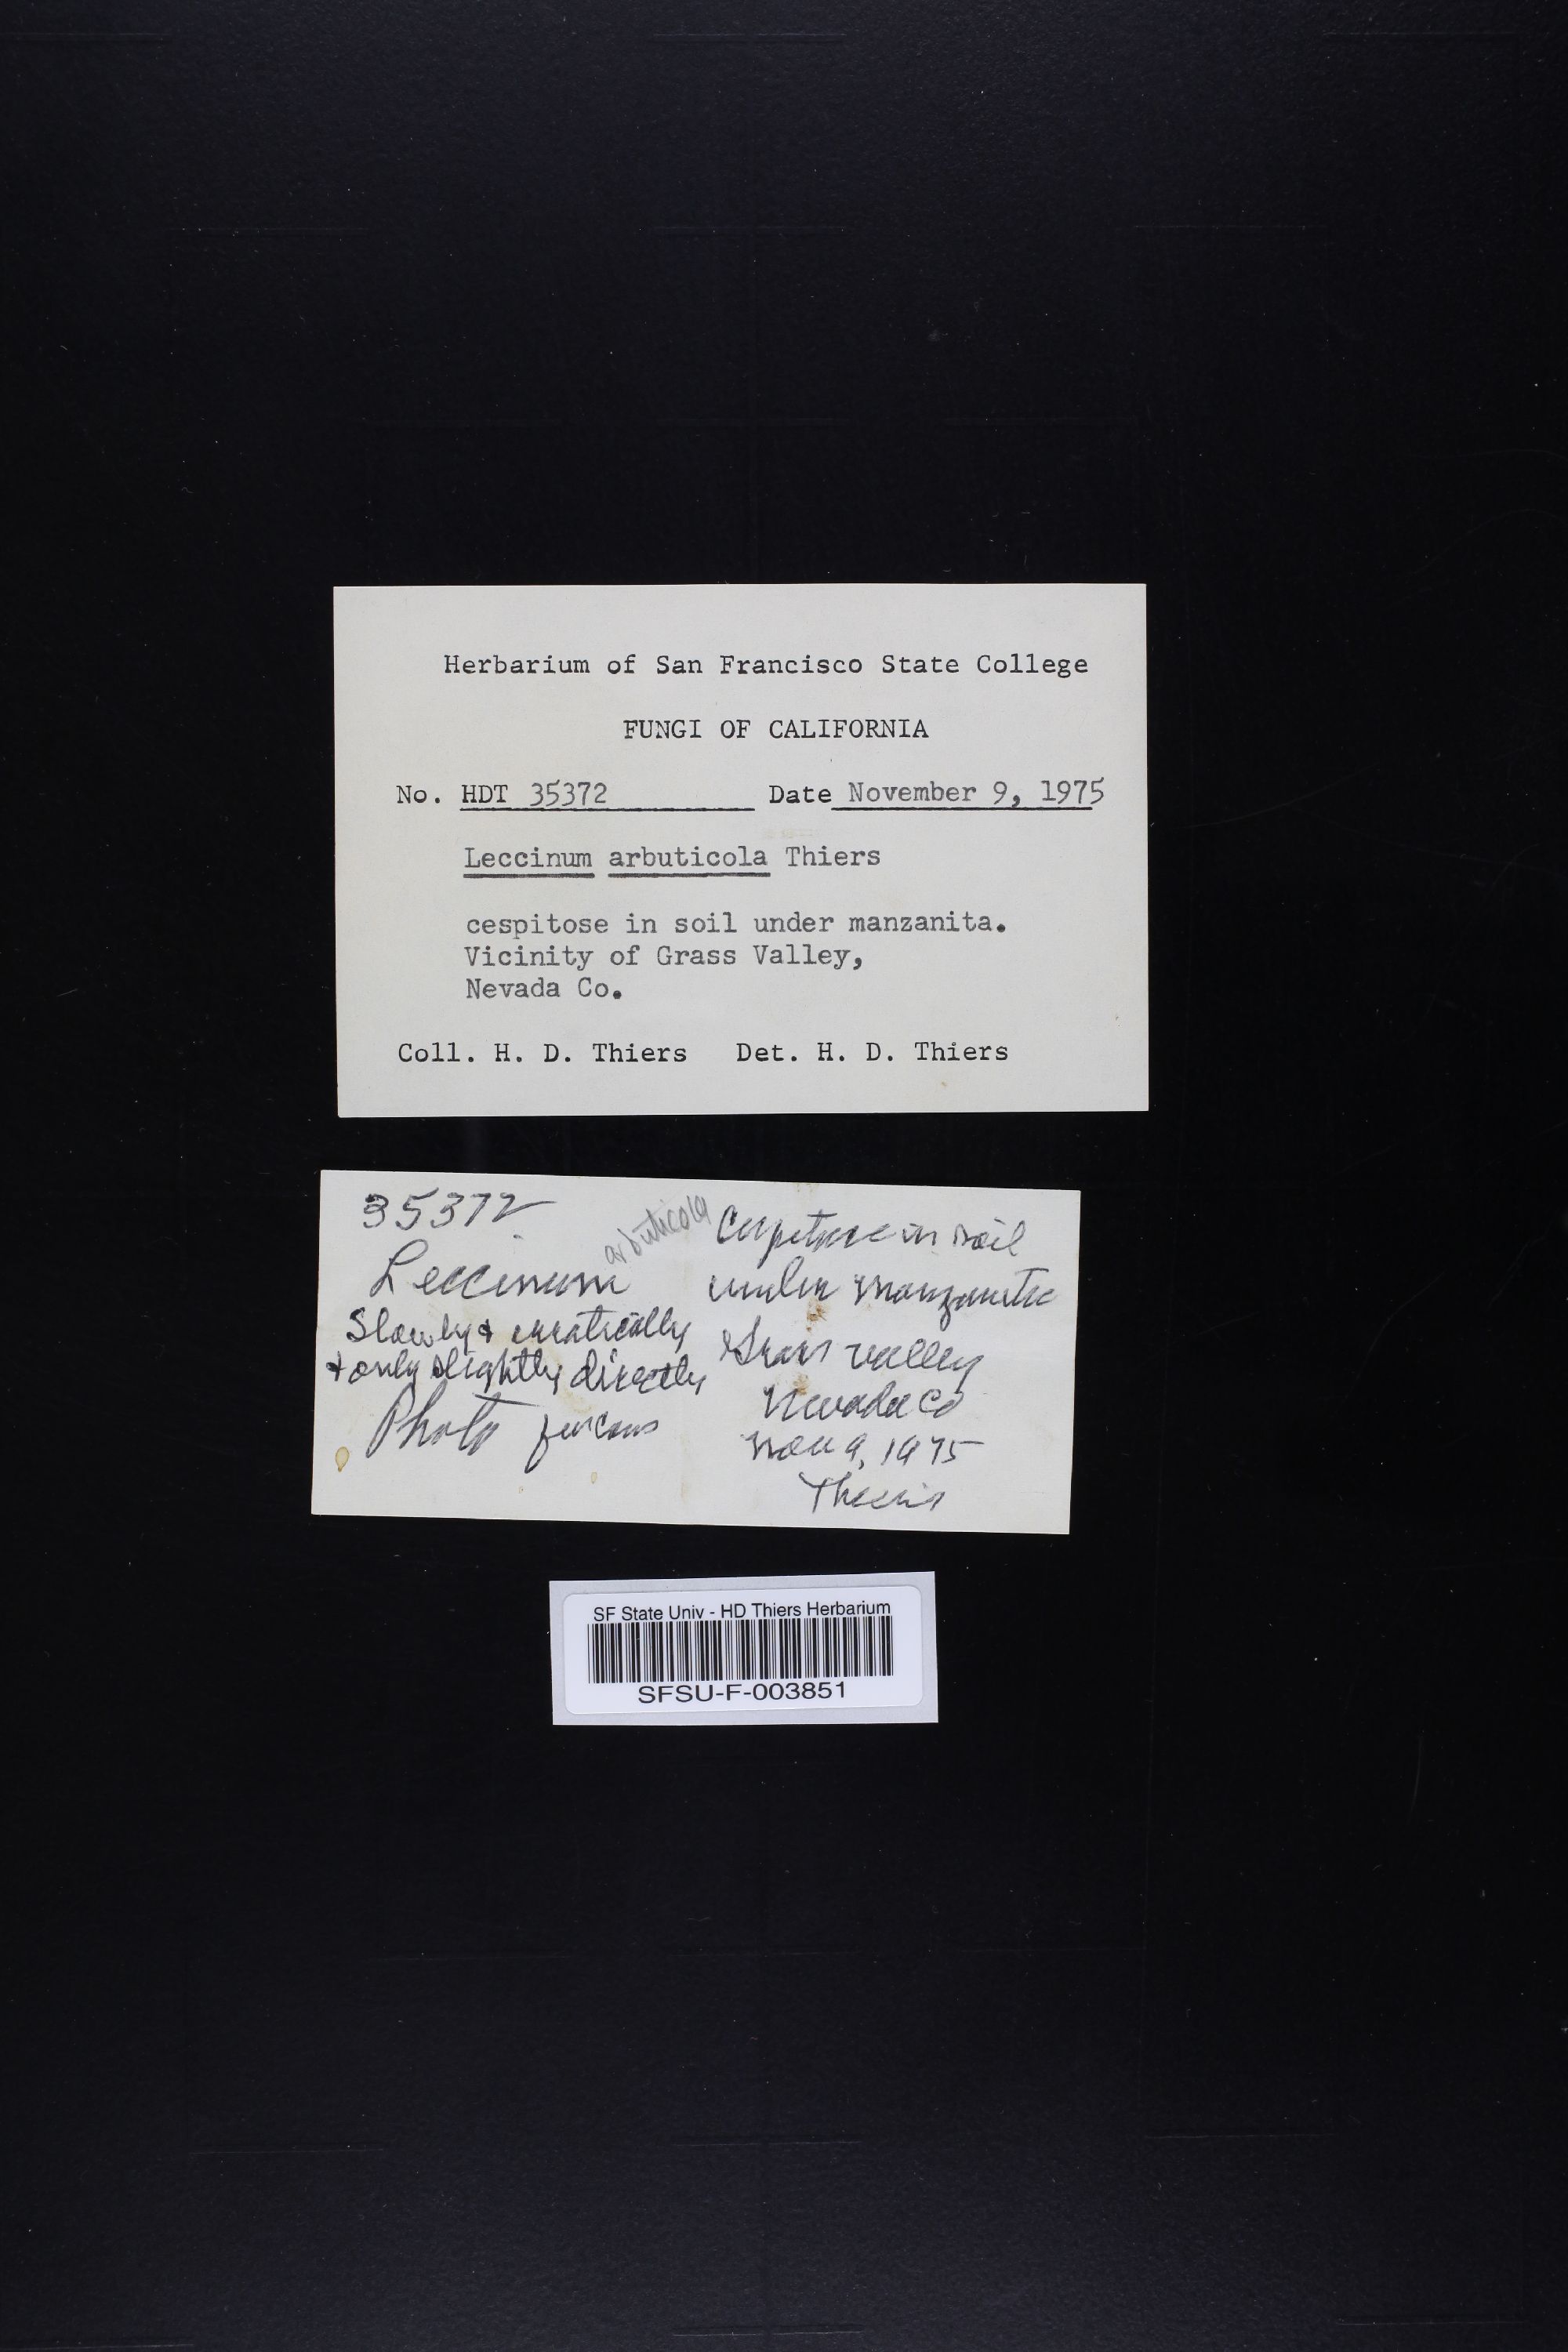 Herbarium of San Francisco State College
FUNGI OF CALIFORNIA
No. HDT 35372 Date November 9, 1975
Leccinum arbuticola Thiers
cespitose in soil under manzanita.
Vicinity of Grass Valley,
Nevada Co.
Coll. H. D. Thiers Det. H. D. Thiers
35372
arbuticola
Leccinum
Slowly & erratically
& only slightly directly
Photo fuscous
Cespitose in soil
under manzanita
Grass Valley
Nevada Co
Nov 9, 1975
Thiers
SF State Univ - HD Thiers Herbarium
SFSU-F-003851